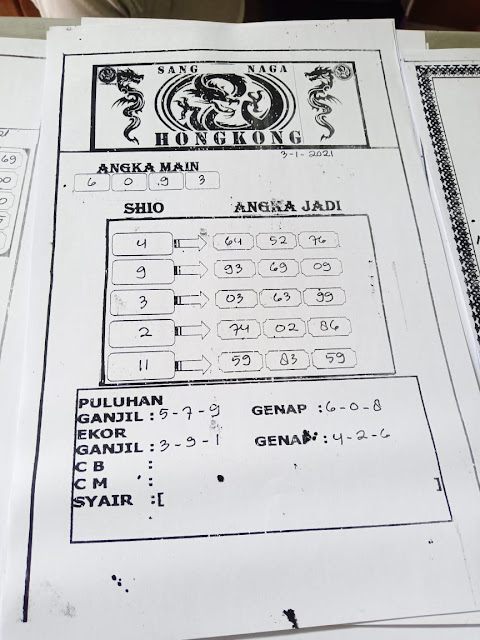 SANG NAGA
HONGKONG
3-1-2021
ANGKA MAIN
6 0 9 3
SHIO ANGKA JADI
4 64 52 76
9 93 69 09
3 03 63 99
2 74 02 86
11 59 83 59
PULUHAN
GANJIL : 5-7-9 GENAP : 6-0-8
EKOR
GANJIL : 3-9-1 GENAP : 4-2-6
C B :
C M :
SYAIR :[ ]
21
69